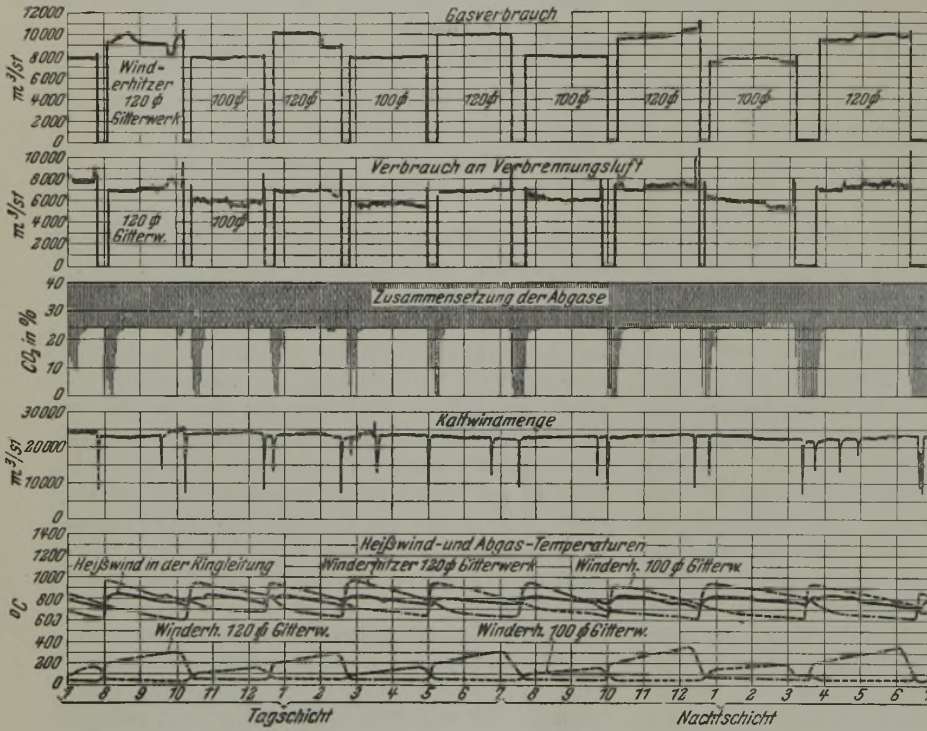 Gasverbrauch
m³/st
12000
10000
8000
6000
4000
2000
0
Wind-
erhitzer
120 ϕ
Gitterwerk
100ϕ
120ϕ
100ϕ
120ϕ
100ϕ
120ϕ
100ϕ
120ϕ
Verbrauch an Verbrennungsluft
m³/st
10000
8000
6000
4000
2000
0
120 ϕ
Gitterw.
100ϕ
Zusammensetzung der Abgase
CO₂ in %
40
30
20
10
0
Kaltwindmenge
m³/st
30000
20000
10000
0
Heißwind- und Abgas-Temperaturen
°C
1400
1200
1000
800
600
400
200
0
Heißwind in der Ringleitung
Winderhitzer 120 ϕ Gitterwerk
Winderh. 100 ϕ Gitterw.
Winderh. 120 ϕ Gitterw.
Winderh. 100 ϕ Gitterw.
7 8 9 10 11 12 1 2 3 4 5 6 7 8 9 10 11 12 1 2 3 4 5 6 7
Tagschicht
Nachtschicht